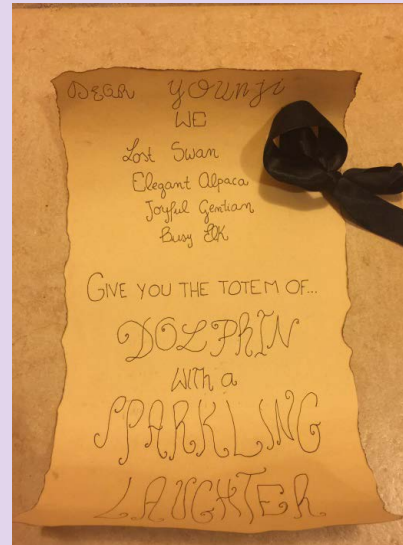 DEAR YOUNJI
WE
Lost Swan
Elegant Alpaca
Joyful Gentian
Busy Elk
GIVE YOU THE TOTEM OF...
DOLPHIN
With a
SPARKLING
LAUGHTER